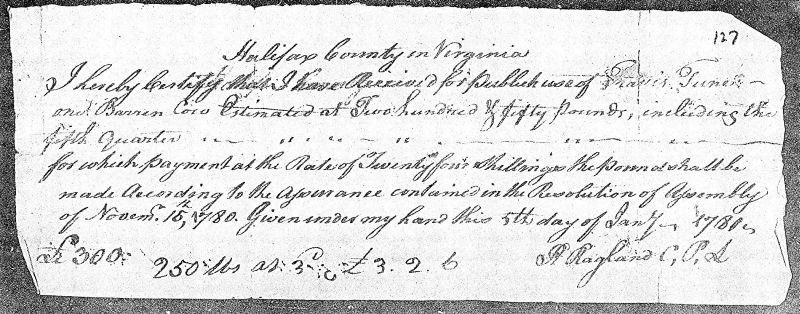 127
Halifax County in Virginia
I hereby Certify that I have Received for publick use of
one Barren Cow Estimated at Two hundred & fifty Pounds, including the
fifth Quarter
for which payment at the Rate of Twenty four shillings the pound shall be
made According to the Assurance contained in the Resolution of Assembly
of Novemr. 15th, 1780. Given under my hand this 5th day of Jany 1781
£300. 250 lbs at 3d £3. 2. 6 Ragland C, P, L